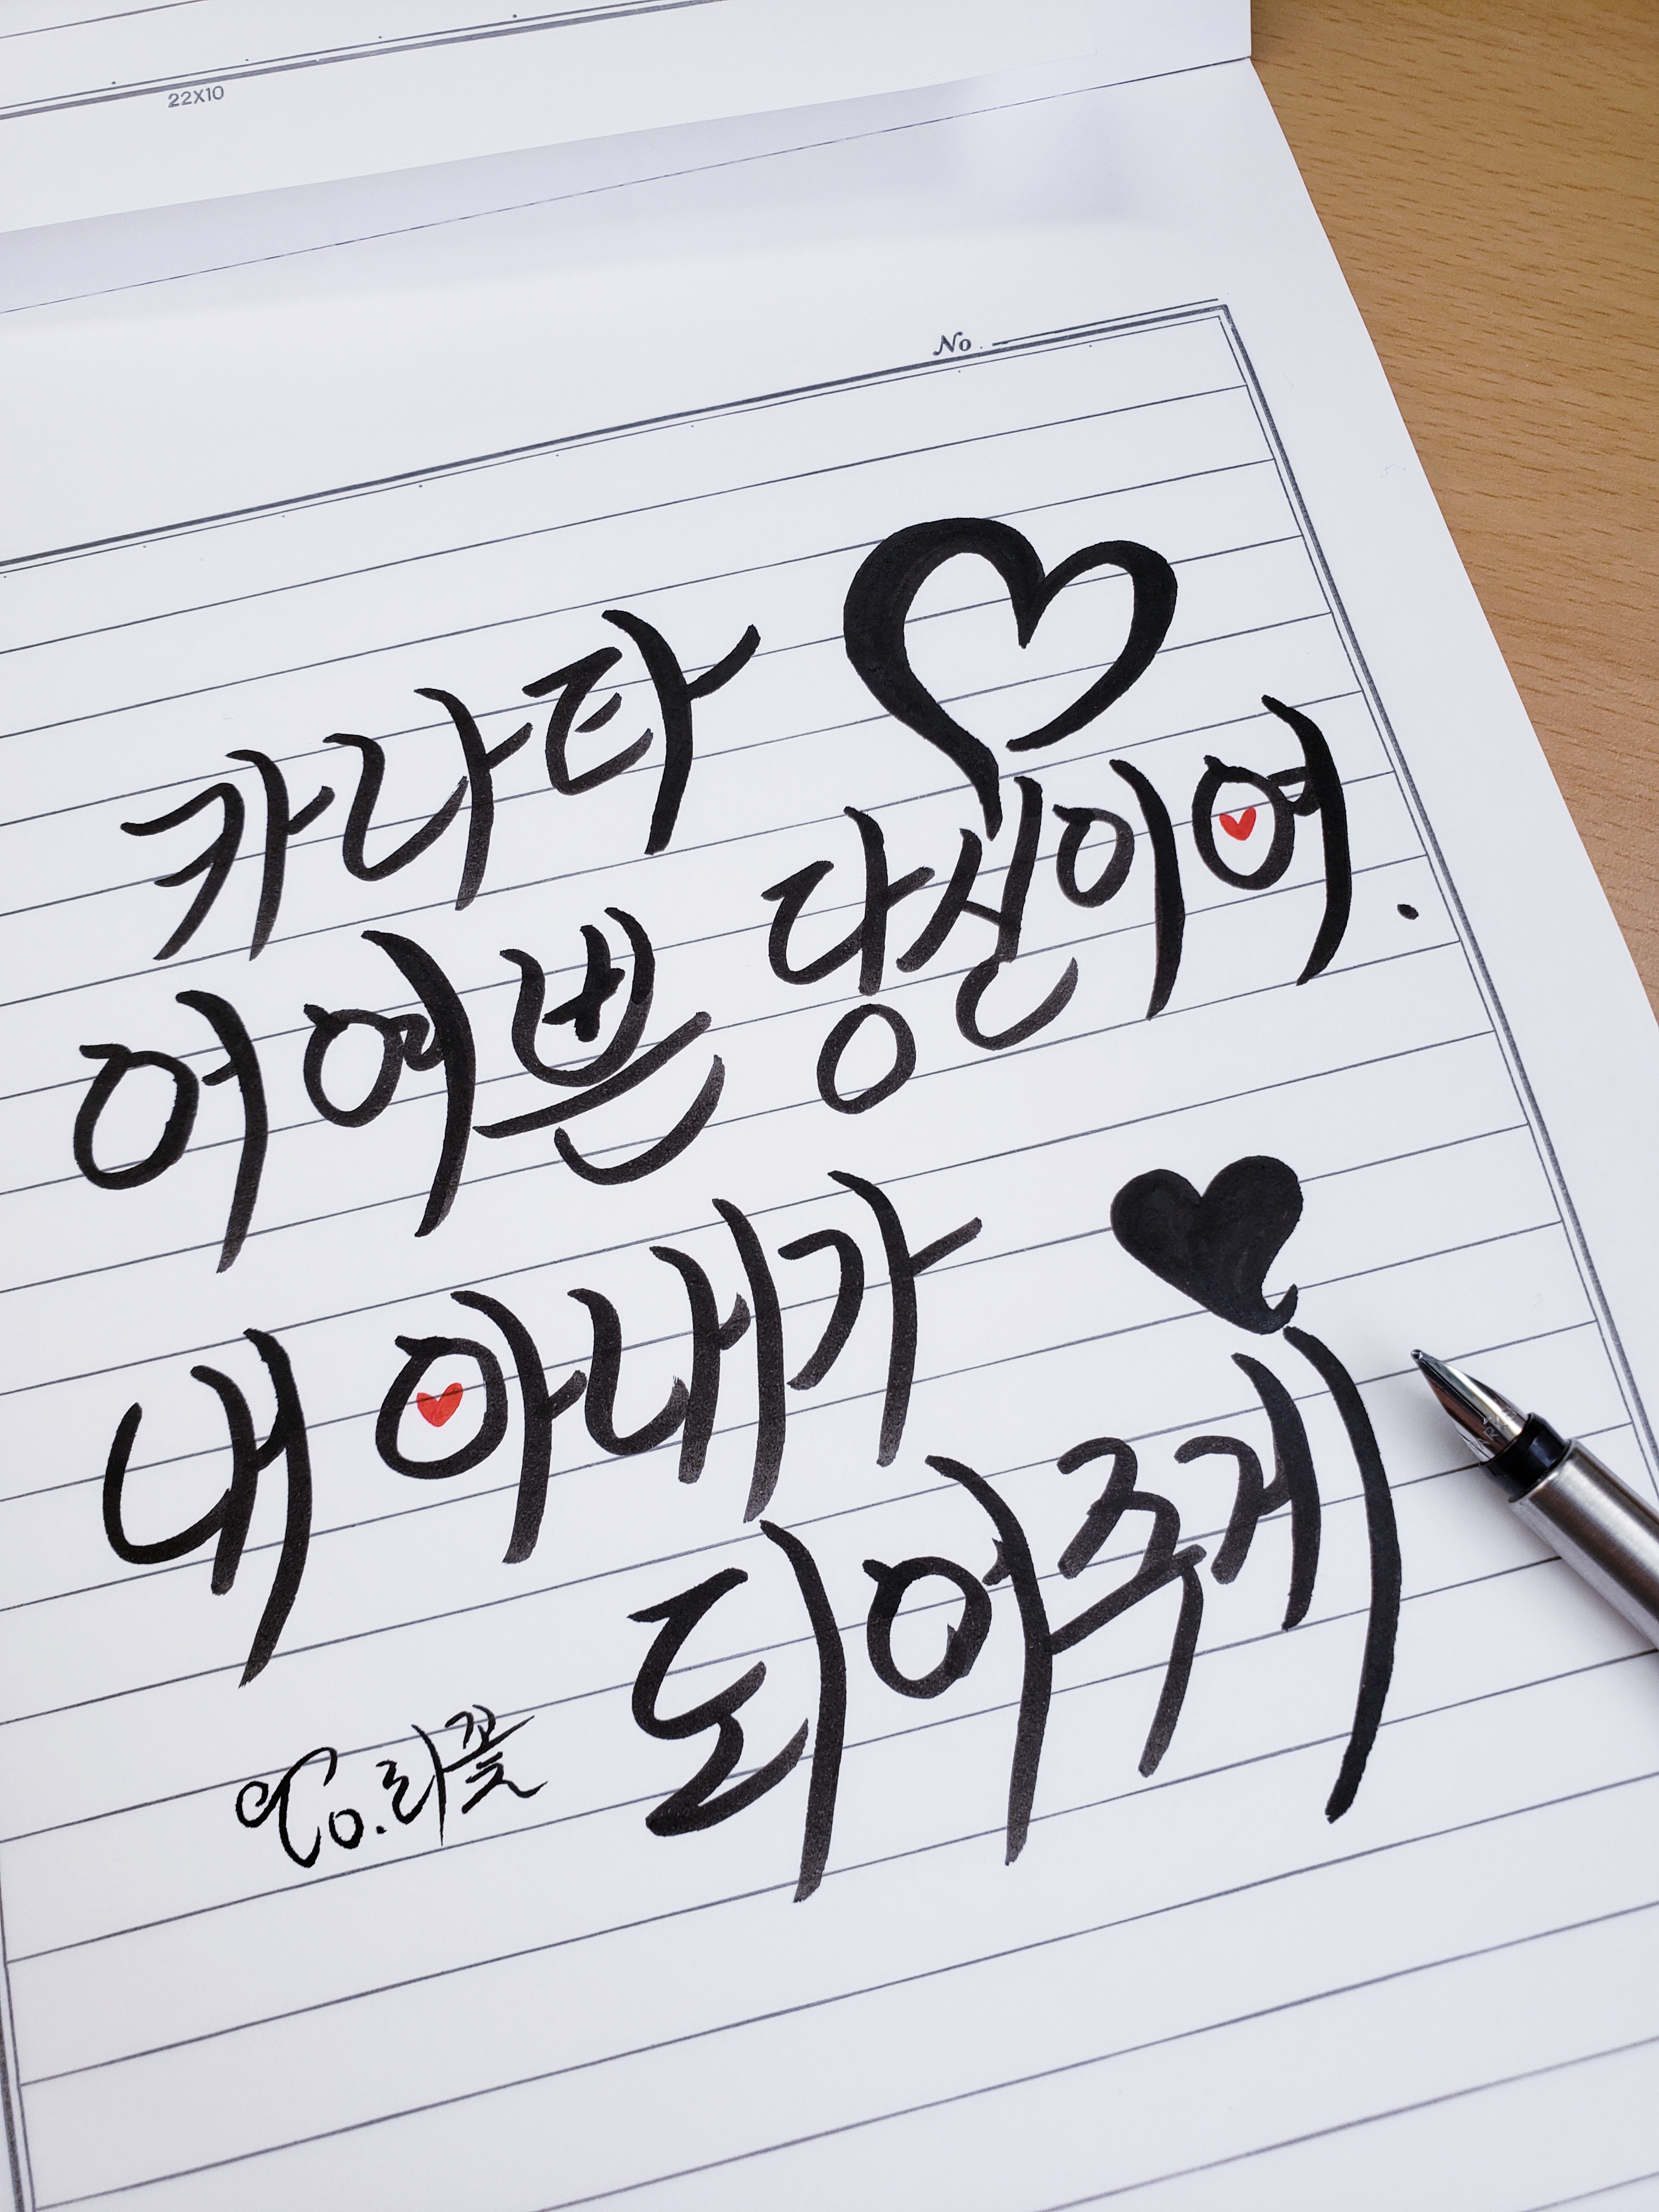 22X10
No.
카나타
어여쁜 당신이여.
내 아내가
되어주게
영.라꽃